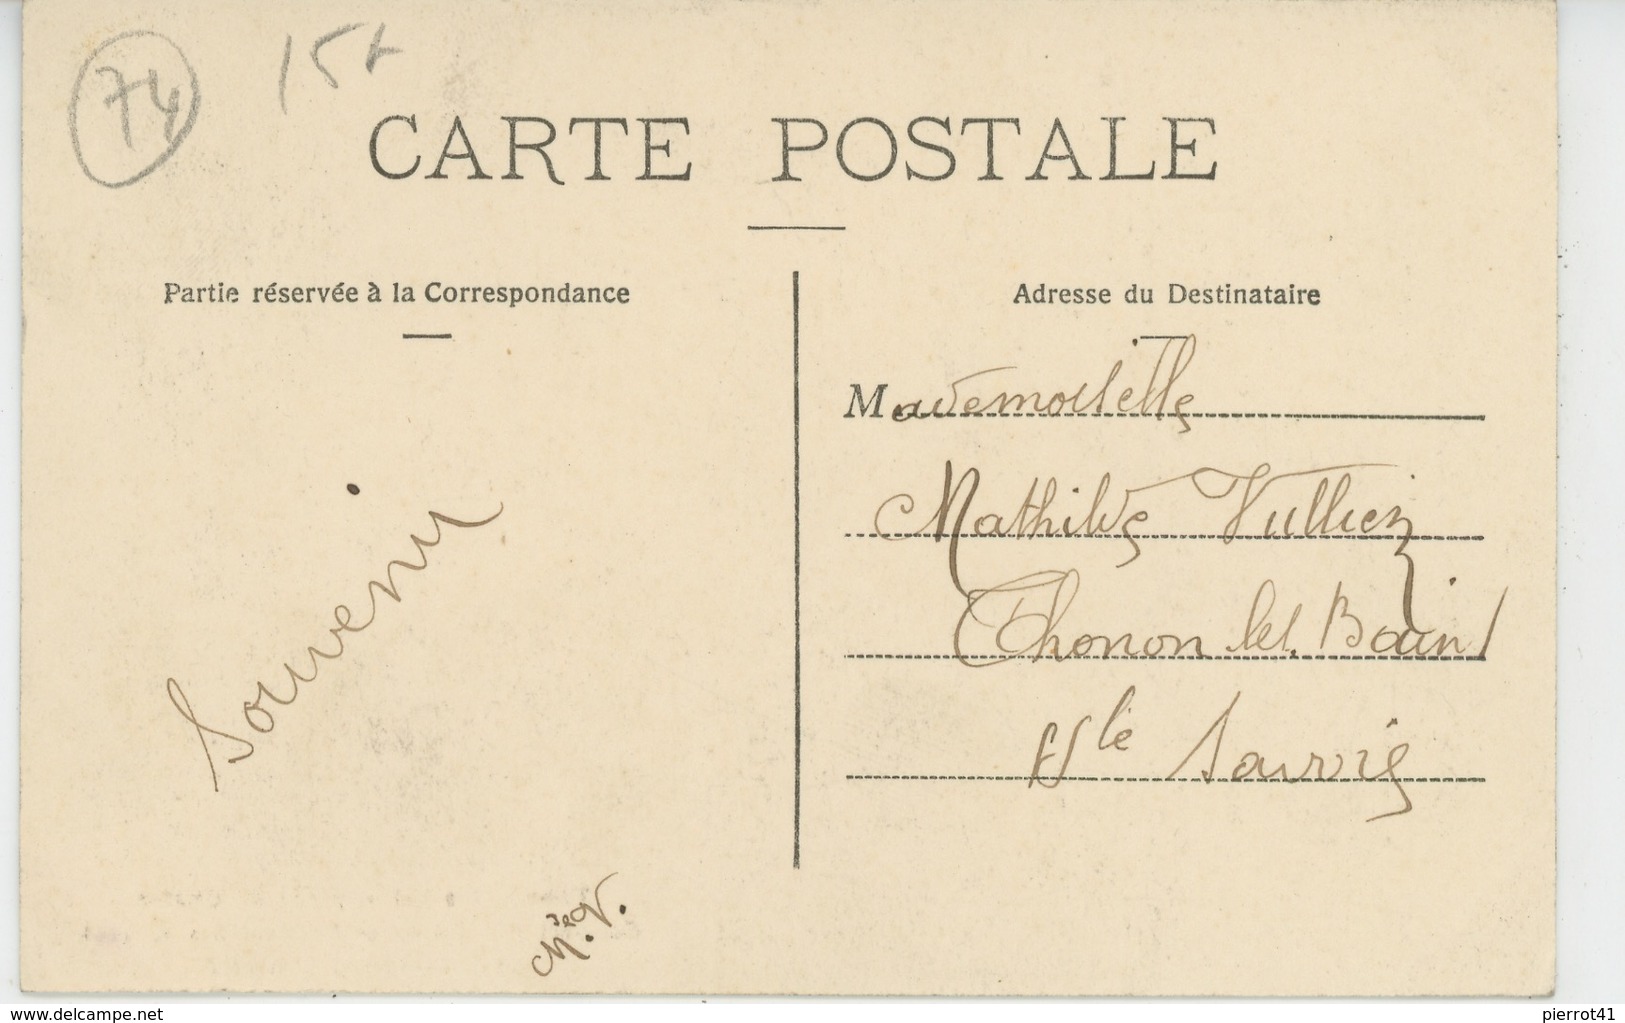 74
15t
CARTE POSTALE
Partie réservée à la Correspondance
Adresse du Destinataire
Mademoiselle
Mathilde Vulliez
Thonon les Bains
Hte Savoie
Souvenir
V.
www.delcampe.net
pierrot41